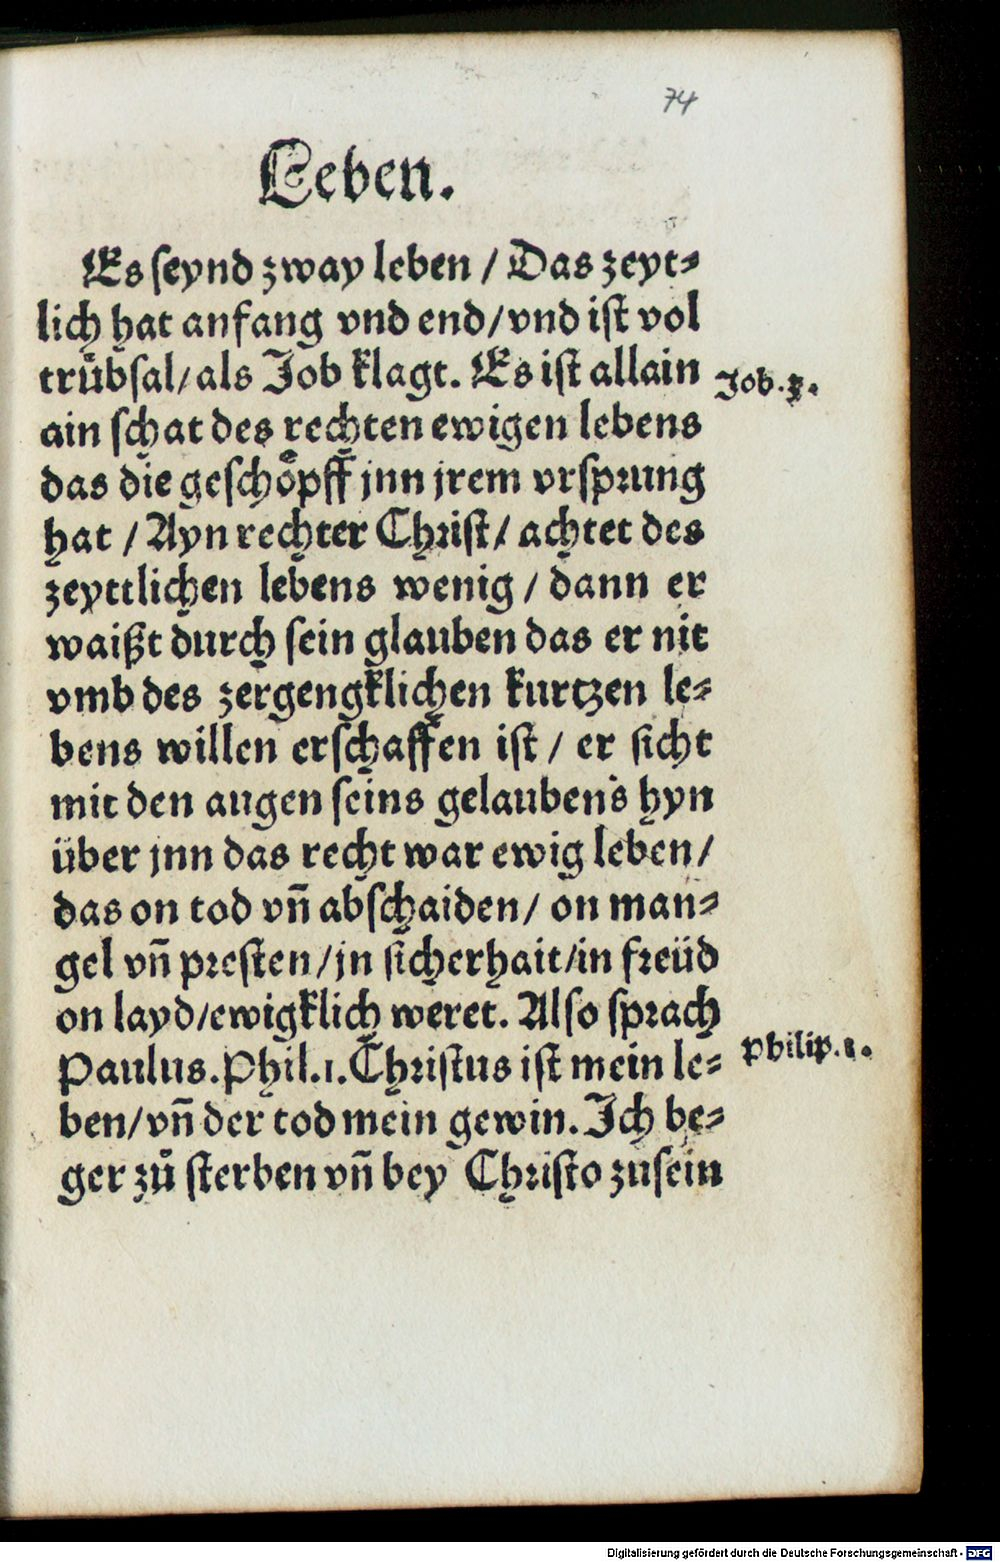 74
Leben.
Es seynd zway leben / Das zeyt⸗
lich hat anfang vnd end/vnd ist vol
truͤbsal/als Job klagt. Es ist allain
Job. 3.
ain schat des rechten ewigen lebens
das die geschoͤpff jnn jrem vrsprung
hat / Ayn rechter Christ/ achtet des
zeyttlichen lebens wenig / dann er
waißt durch sein glauben das er nit
vmb des zergengklichen kurtzen le⸗
bens willen erschaffen ist / er sicht
mit den augen seins gelaubens hyn
über jnn das recht war ewig leben/
das on tod vñ abschaiden/ on man⸗
gel vñ presten/jn sicherhait/in freüd
on layd/ewigklich weret. Also sprach
Paulus.Phil.1.Christus ist mein le⸗
Philip.1.
ben/vñ der tod mein gewin. Ich be⸗
ger zů sterben vñ bey Christo zusein
Digitalisierung gefördert durch die Deutsche Forschungsgemeinschaft - DFG